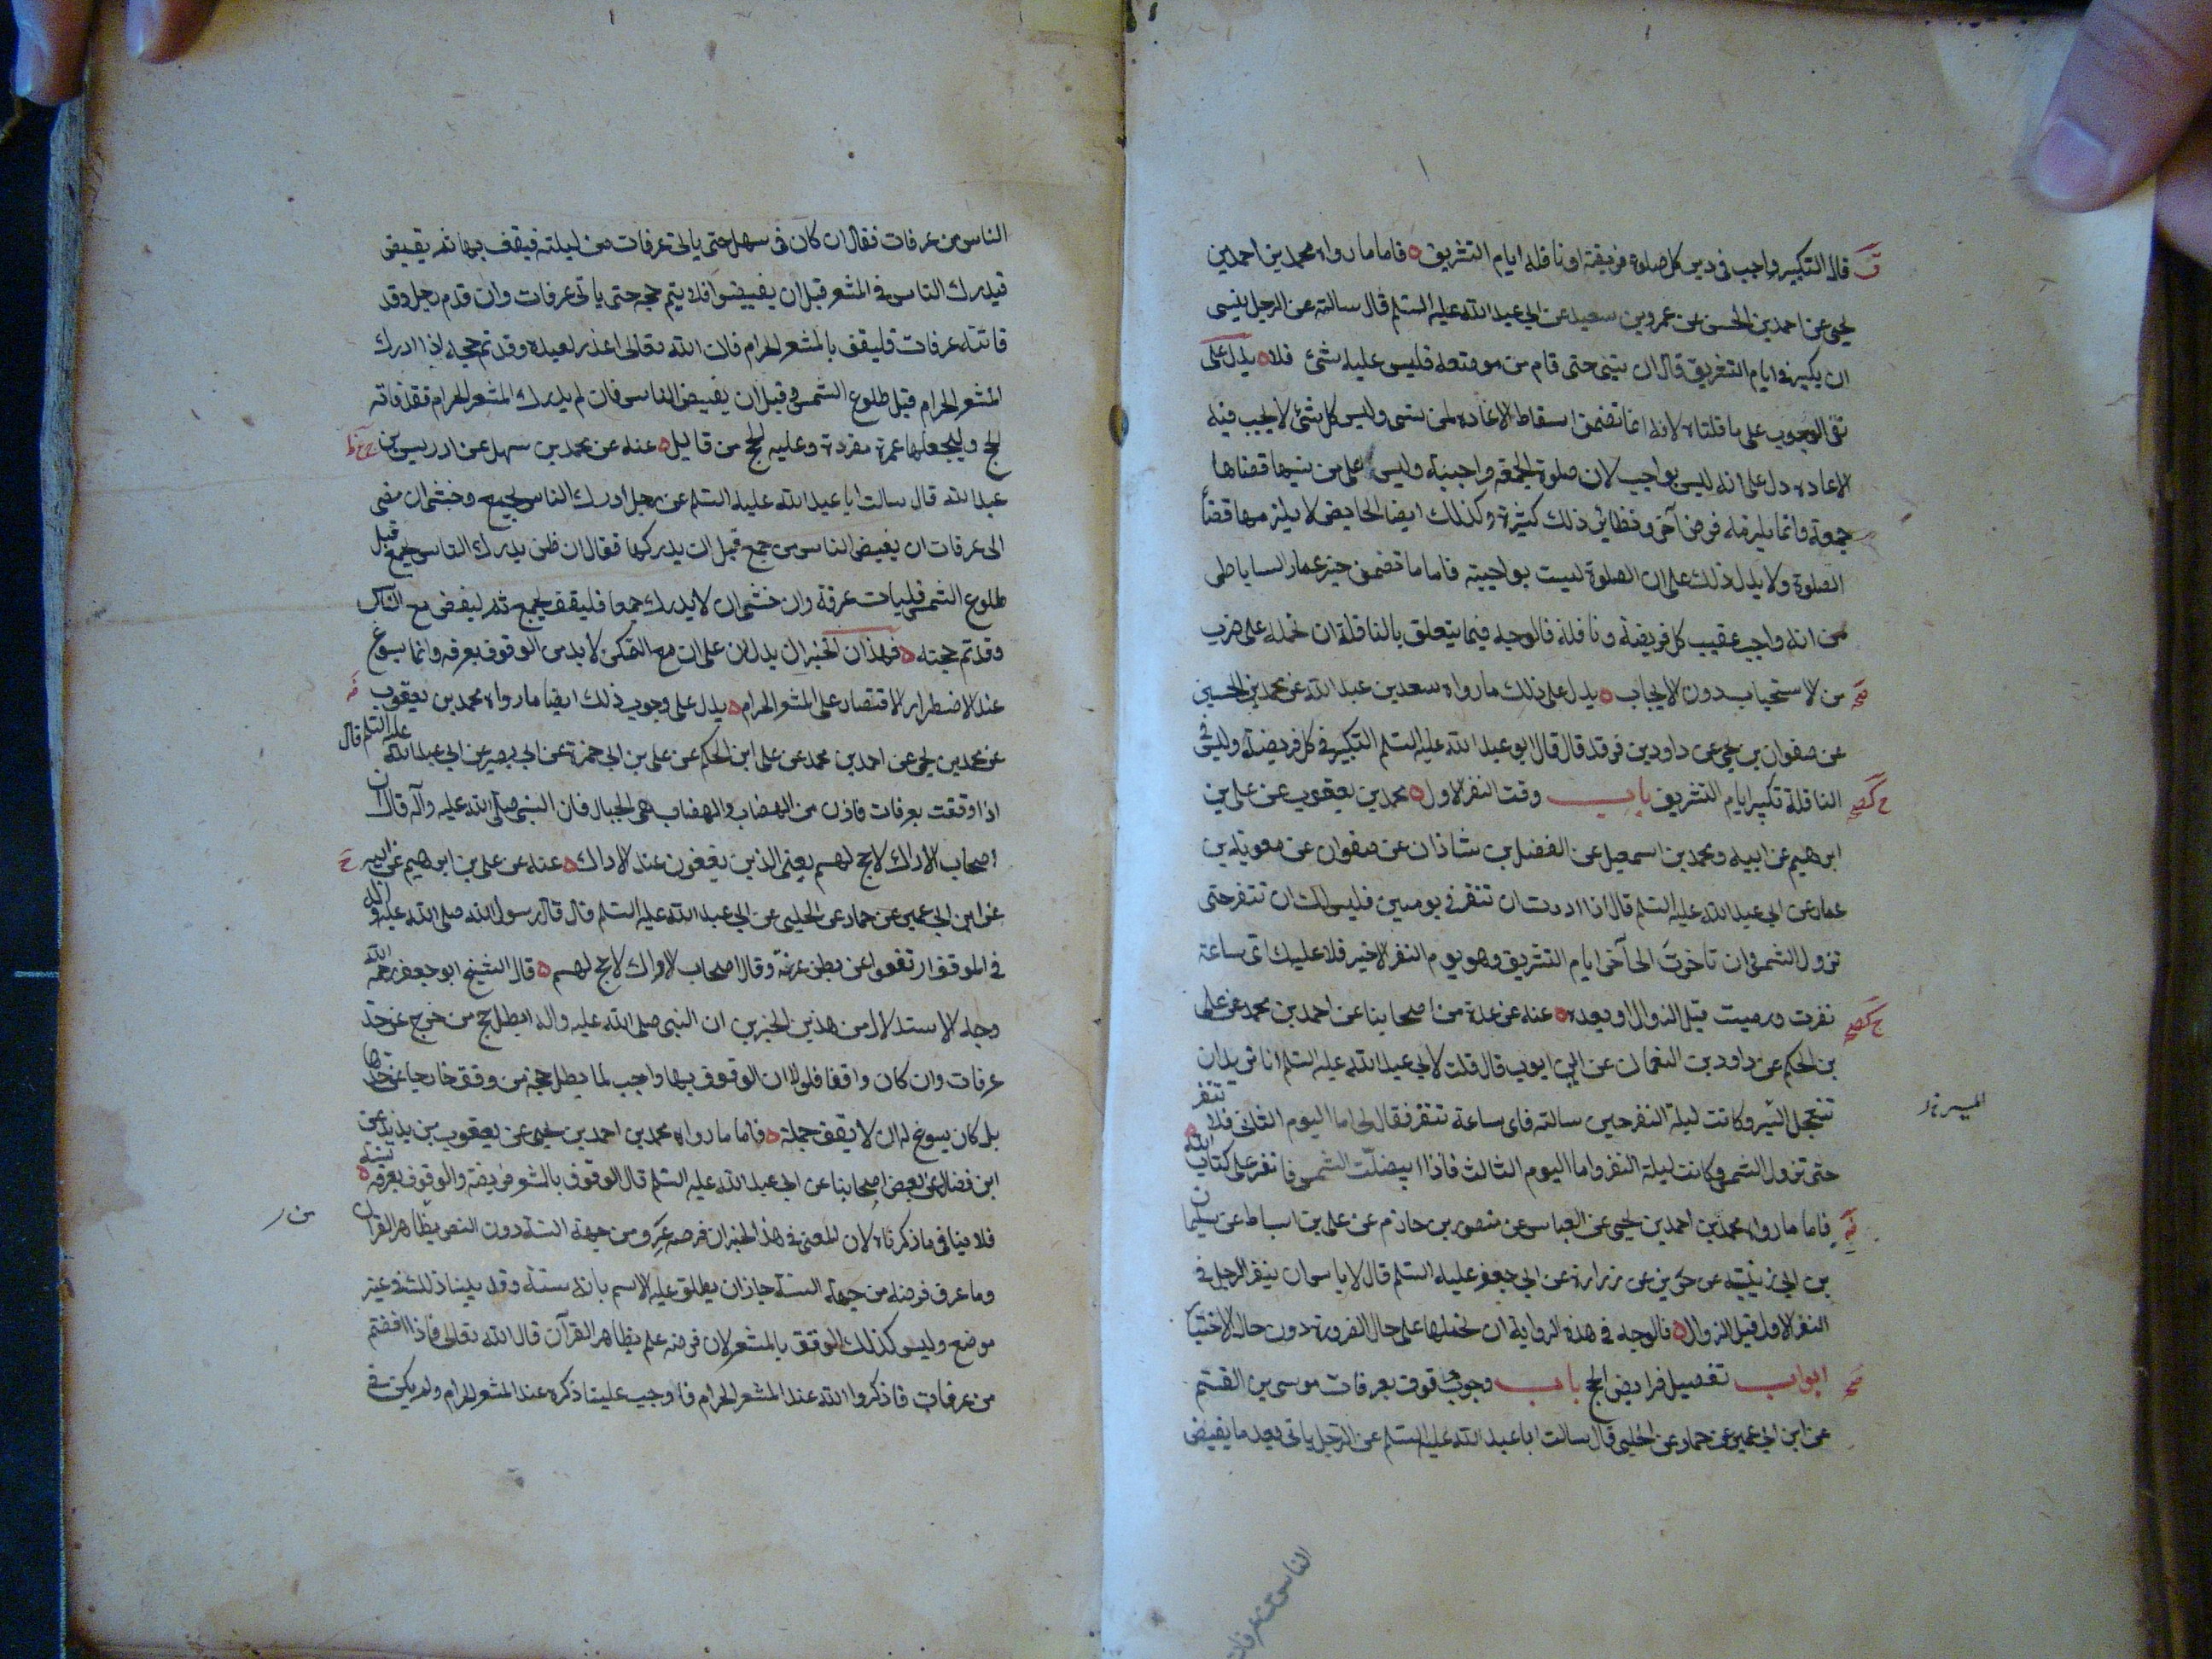 قال التكبير واجب في دبر كل صلوة فريضة او نافلة ايام التشريق ه فاما ما رواه محمد بن احمد بن
يحيى عن احمد بن الحسن عن عمرو بن سعيد عن ابي عبد الله عليه السلم قال سالته عن الرجل ينسى
ان يكبر في ايام التشريق قال ان نسى حتى قام من موضعه فليس عليه شئ فلا ه يدل على
نفى الوجوب على ما قلناه لانه انما تضمن اسقاط الاعادة لمن نسى وليس كل شئ لا يجب فيه
الاعادة دل على انه ليس بواجب لان صلوة الجمعة واجبة وليس على من نسيها قضاها
جمعة وانما يلزمه فرض آخر ونظائر ذلك كثيرة وكذلك ايضا الحايض لا يلزمها قضا
الصلوة ولا يدل ذلك على ان الصلوة ليست بواجبة فاما ما تضمن خبر عمار الساباطى
من انه واجب عقيب كل فريضة ونافلة فالوجه فيما يتعلق بالنافلة ان نحمله على ضرب
من الاستحباب دون الايجاب ه يدل على ذلك ما رواه سعد بن عبد الله عن محمد بن الحسين
عن صفوان بن يحيى عن داود بن فرقد قال قال ابو عبد الله عليه السلم التكبير في كل فريضة وليس في
النافلة تكبير ايام التشريق باب وقت النفر الاول ه محمد بن يعقوب عن على بن
ابرهيم عن ابيه ومحمد بن اسمعيل عن الفضل بن شاذان عن صفوان عن معوية بن
عمار عن ابي عبد الله عليه السلم قال اذا اردت ان تنفر في يومين فليس لك ان تنفر حتى
تزول الشمس وان تاخرت الى آخر ايام التشريق وهو يوم النفر الاخير فلا عليك اى ساعة
نفرت ورميت قبل الزوال او بعده ه عنه عن عدة من اصحابنا عن احمد بن محمد عن على
بن الحكم عن داود بن النعمان عن ابي ايوب قال قلت لابي عبد الله عليه السلم انا نريد ان
نتعجل السير وكانت ليلة النفر حين سالته فاى ساعة ننفر فقال لى اما اليوم الثانى فلا تنفر
حتى تزول الشمس وكانت ليلة النفر واما اليوم الثالث فاذا ابيضت الشمس فانفر على كتاب الله ه
فاما ما رواه محمد بن احمد بن يحيى عن العباس عن منصور بن حازم عن على بن اسباط عن سليمان
بن ابي زينبة عن حريز عن زرارة عن ابي جعفر عليه السلم قال لا باس ان ينفر الرجل في
النفر الاول قبل الزوال ه فالوجه في هذه الرواية ان نحملها على حال الضرورة دون حال الاختيار
ابواب تفصيل فرايض الحج باب وجوب الوقوف بعرفات موسى بن القسم
عن ابن ابي عمير عن حماد عن الحلبى قال سالت ابا عبد الله عليه السلم عن الرجل ياتى بعد ما يفيض
الناس من عرفات
الناس من عرفات فقال ان كان في مهل حتى ياتى عرفات من ليلته فيقف بها ثم يفيض
فيدرك الناس في المشعر قبل ان يفيضوا فلا يتم حجه حتى ياتى عرفات وان قدم رجل وقد
فاتته عرفات فليقف بالمشعر الحرام فان الله تعالى اعذر لعبده وقد تم حجه اذا ادرك
المشعر الحرام قبل طلوع الشمس وقبل ان يفيض الناس فان لم يدرك المشعر الحرام فقد فاته
الحج وليجعلها عمرة مفردة وعليه الحج من قابل ه عنه عن محمد بن سهل عن ادريس بن
عبد الله قال سالت ابا عبد الله عليه السلم عن رجل ادرك الناس بجمع وخشى ان مضى
الى عرفات ان يفيض الناس من جمع قبل ان يدركها فقال ان ظن يدرك الناس بجمع قبل
طلوع الشمس فليات عرفة وان خشى ان لا يدرك جمعا فليقف بجمع ثم ليفض مع الناس
وقد تم حجته ه فهذان الخبران يدلان على ان مع التمكن لا بد من الوقوف بعرفه وانما يسوغ
عند الاضطرار الاقتصار على المشعر الحرام ه يدل على وجوب ذلك ايضا ما رواه محمد بن يعقوب
عن محمد بن يحيى عن احمد بن محمد عن على ابن الحكم عن على بن ابي حمزة عن ابي بصير عن ابي عبد الله عليه السلم قال
اذا وقفت بعرفات فادن من الهضاب والهضاب هى الجبال فان النبى صلى الله عليه وآله قال ان
اصحاب الاراك لا حج لهم يعنى الذين يقفون عند الاراك ه عنه عن على بن ابرهيم عن ابيه
عن ابن ابي عمير عن حماد عن الحلبى عن ابي عبد الله عليه السلم قال قال رسول الله صلى الله عليه وآله
في الموقف ارتفعوا عن بطن عرنة وقال اصحاب الاراك لا حج لهم ه قال الشيخ ابو جعفر رحمه الله
وجه الاستدلال من هذين الخبرين ان النبى صلى الله عليه واله ابطل حج من خرج عن حد
عرفات وان كان واقفا فلولا ان الوقوف بها واجب لما بطل حجة من وقف خارجا عن حدها
بل كان يسوغ له ان لا يقف جملة ه فاما ما رواه محمد بن احمد بن يحيى عن يعقوب بن يزيد عن
ابن فضال عن بعض اصحابنا عن ابي عبد الله عليه السلم قال الوقوف بالمشعر فريضة والوقوف بعرفه سنة ه
فلا ينافى ما ذكرناه لان المعنى في هذا الخبر ان فرضه عرف من جهة السنة دون النص بظاهر القرآن
وما عرف فرضه من جهة السنة جاز ان يطلق عليه الاسم بانه سنة وقد بينا ذلك في غير
موضع وليس كذلك الوقوف بالمشعر لان فرضه علم بظاهر القرآن قال الله تعالى فاذا افضتم
من عرفات فاذكروا الله عند المشعر الحرام فاوجب علينا ذكره عند المشعر الحرام ولم يكن في